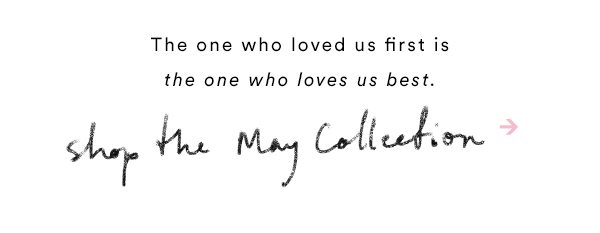 The one who loved us first is
the one who loves us best.
shop the May Collection →